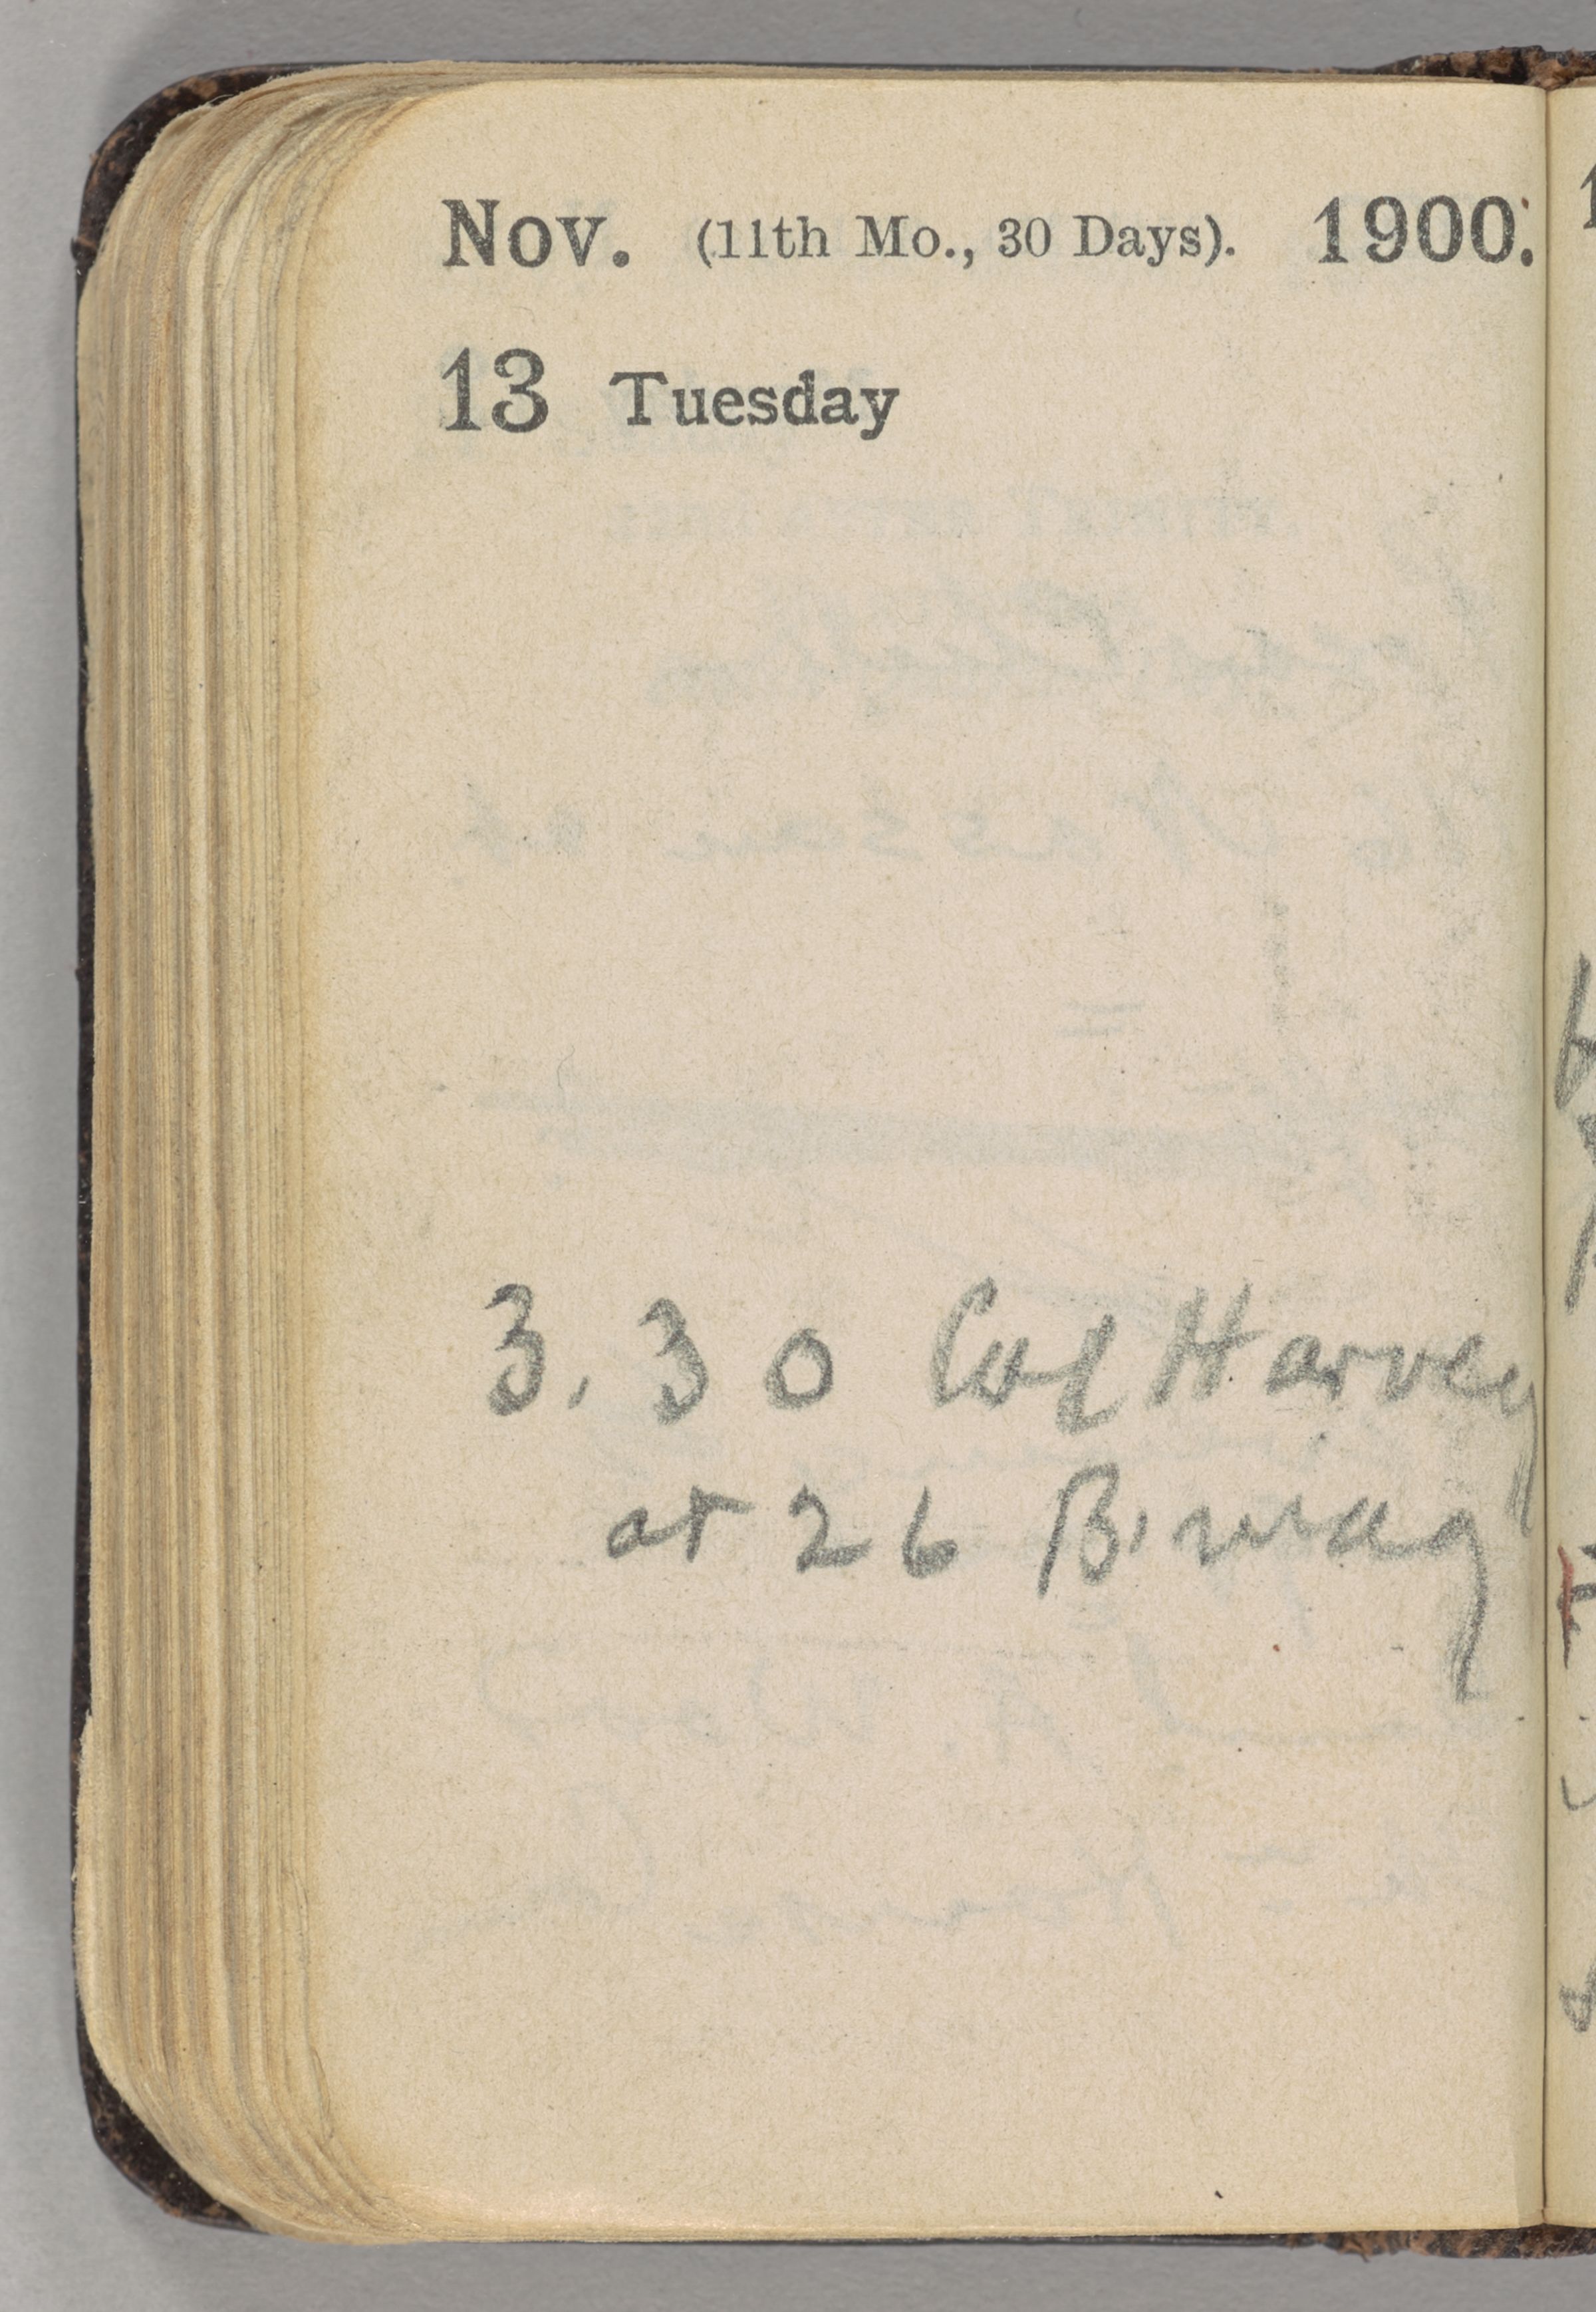 Nov. (11th Mo., 30 Days). 1900.
13 Tuesday
3.30 Col Harvey
at 26 B.